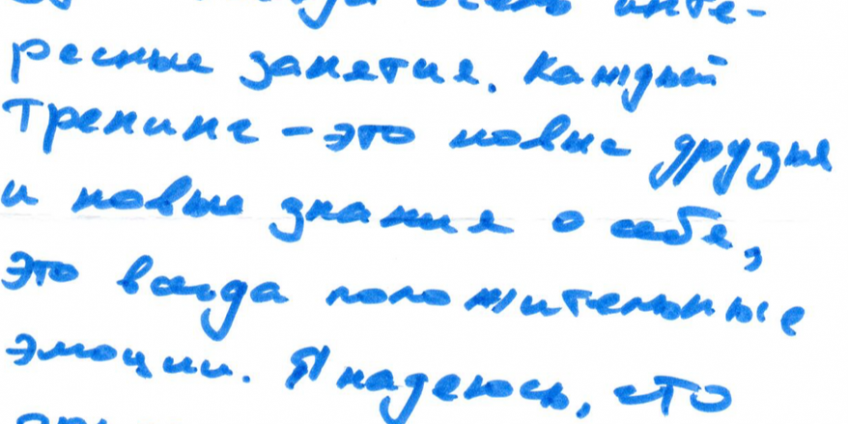 очень инте-
ресные занятия. Каждый
тренинг - это новые друзья
и новые знания о себе,
это всегда положительные
эмоции. Я надеюсь, что